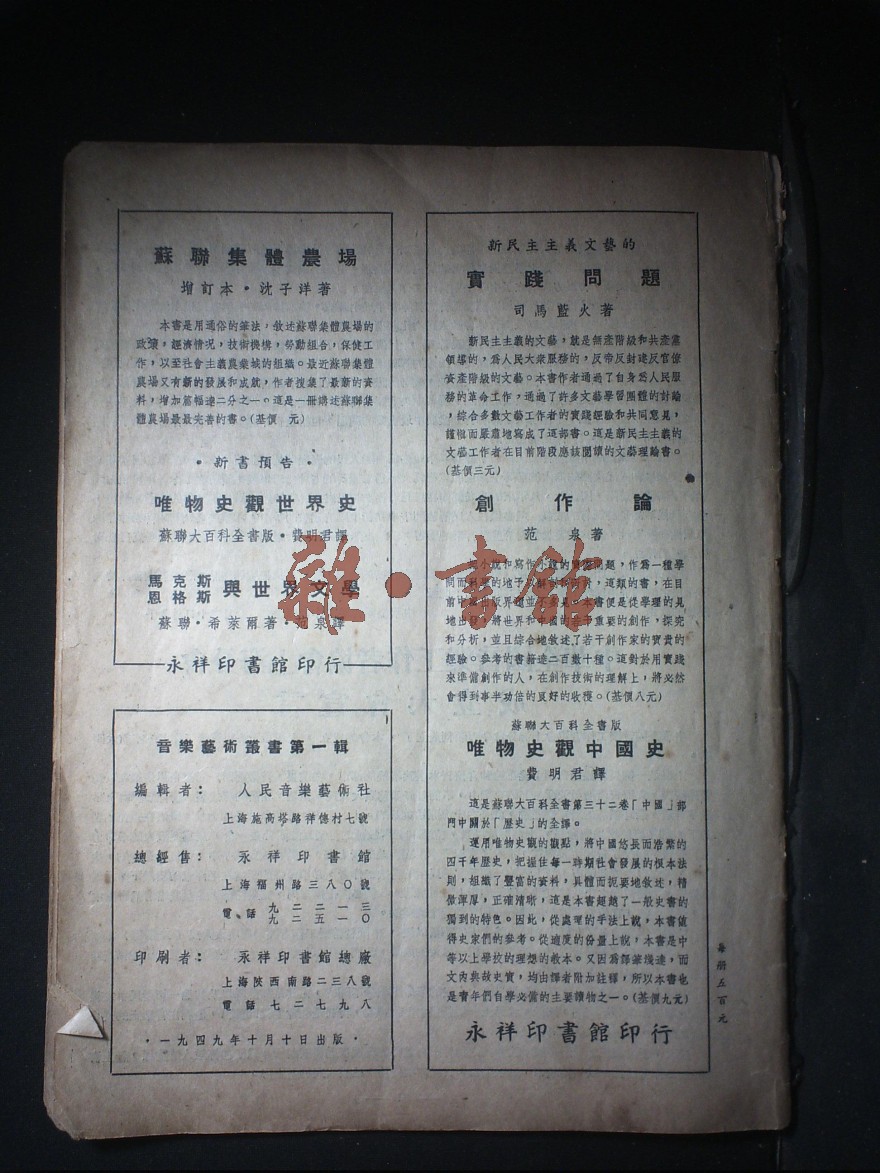 蘇聯集體農場
增訂本·沈子洋著
本書是用通俗的筆法，敘述蘇聯集體農場的
政策，經濟情況，技術機構，勞動組合，保健工
作，以至社會主義農業城的組織。最近蘇聯集體
農場又有新的發展和成就，作者搜集了最新的資
料，增加篇幅達二分之一。這是一冊講述蘇聯集
體農場最最完善的書。(基價　元)
·新書預告·
唯物史觀世界史
蘇聯大百科全書版·費明君譯
馬克斯
恩格斯 與世界文學
蘇聯·希萊爾著·范泉譯
永祥印書館印行
音樂藝術叢書第一輯
編輯者：人民音樂藝術社
上海施高塔路祥德村七號
總經售：永祥印書館
上海福州路三八〇號
電話 九二二一三
九二五一〇
印刷者：永祥印書館總廠
上海陝西南路二三八號
電話七二七九八
·一九四九年十月十日出版·
新民主主義文藝的
實踐問題
司馬藍火著
新民主主義的文藝，就是無產階級和共產黨
領導的，為人民大衆服務的，反帝反封建反官僚
資產階級的文藝。本書作者通過了自身為人民服
務的革命工作，通過了許多文藝學習團體的討論
，綜合多數文藝工作者的實踐經驗和共同意見，
謹慎而嚴肅地寫成了這部書。這是新民主主義的
文藝工作者在目前階段應該閱讀的文藝理論書。
(基價三元)
創作論
范泉著
小說和寫作小說的實際問題，作為一種學
問而科學的地予以解說和研討，這類的書，在目
前中國出版界還並不多見。本書便是從學理的見
地出發，將世界和中國的若干重要的創作，探究
和分析，並且綜合地敘述了若干創作家的寶貴的
經驗。參考的書籍達二百數十種。這對於用實踐
來準備創作的人，在創作技術的理解上，將必然
會得到事半功倍的良好的收穫。(基價八元)
蘇聯大百科全書版
唯物史觀中國史
費明君譯
這是蘇聯大百科全書第三十二卷「中國」部
門中關於「歷史」的全譯。
運用唯物史觀的觀點，將中國悠長而浩繁的
四千年歷史，把握住每一時期社會發展的根本法
則，組織了豐富的資料，具體而扼要地敘述，精
僻渾厚，正確清晰，這是本書超踰了一般史書的
獨到的特色。因此，從處理的手法上說，本書值
得史家們的參考。從適度的份量上說，本書是中
等以上學校的理想的教本。又因為譯筆淺達，而
文內典故史實，均由譯者附加註釋，所以本書也
是青年們自學必備的主要讀物之一。(基價九元)
永祥印書館印行
每冊五百元
雜·書館